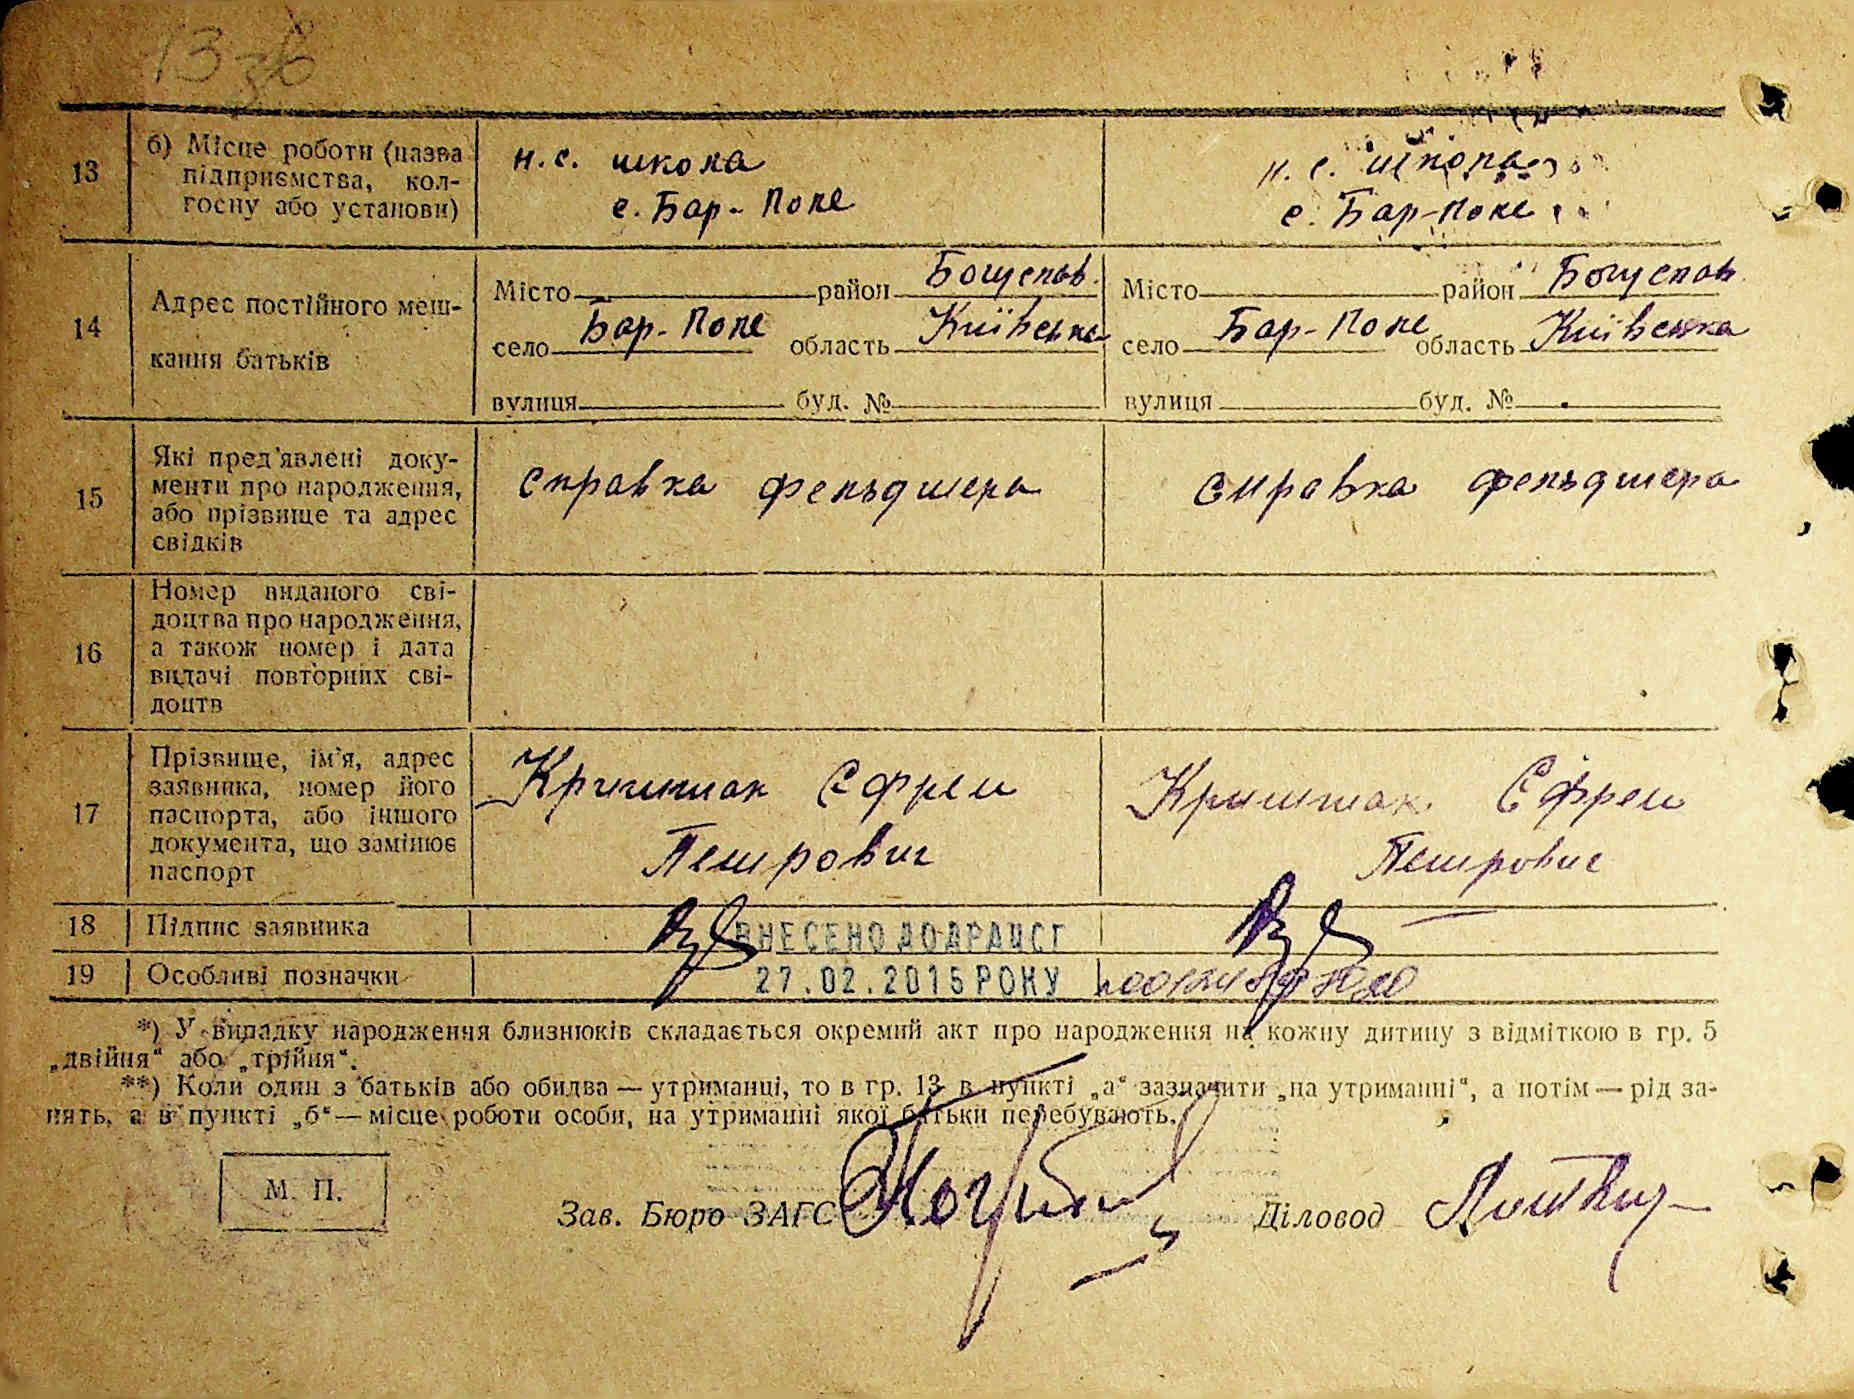 13 зв
13
б) Місце роботи (назва
підприємства, кол-
госпу або установи)
н.с. школа
с. Бар-Поле
н.с. школа
с. Бар-Поле
14
Адрес постійного меш-
кання батьків
Місто район Богуслав.
село Бар-Поле область Київська
вулиця буд. №
Місто район Богуслав
село Бар-Поле область Київська
вулиця буд. №
15
Які пред'явлені доку-
менти про народження,
або прізвище та адрес
свідків
справка фельдшера
справка фельдшера
16
Номер виданого сві-
доцтва про народження,
а також номер і дата
видачі повторних сві-
доцтв
17
Прізвище, ім'я, адрес
заявника, номер його
паспорта, або іншого
документа, що замінює
паспорт
Кришмак Єфрем
Петрович
Кришмак Єфрем
Петрович
18 Підпис заявника
ВНЕСЕНО ДО ДРАЦСГ
19 Особливі позначки
27.02.2015 РОКУ
*) У випадку народження близнюків складається окремий акт про народження на кожну дитину з відміткою в гр. 5
„двійня“ або „трійня“.
**) Коли один з батьків або обидва — утриманці, то в гр. 13 в пункті „а“ зазначити „на утриманні“, а потім — рід за-
нять, а в пункті „б“ — місце роботи особи, на утриманні якої батьки перебувають.
М. П.
Зав. Бюро ЗАГС
Діловод